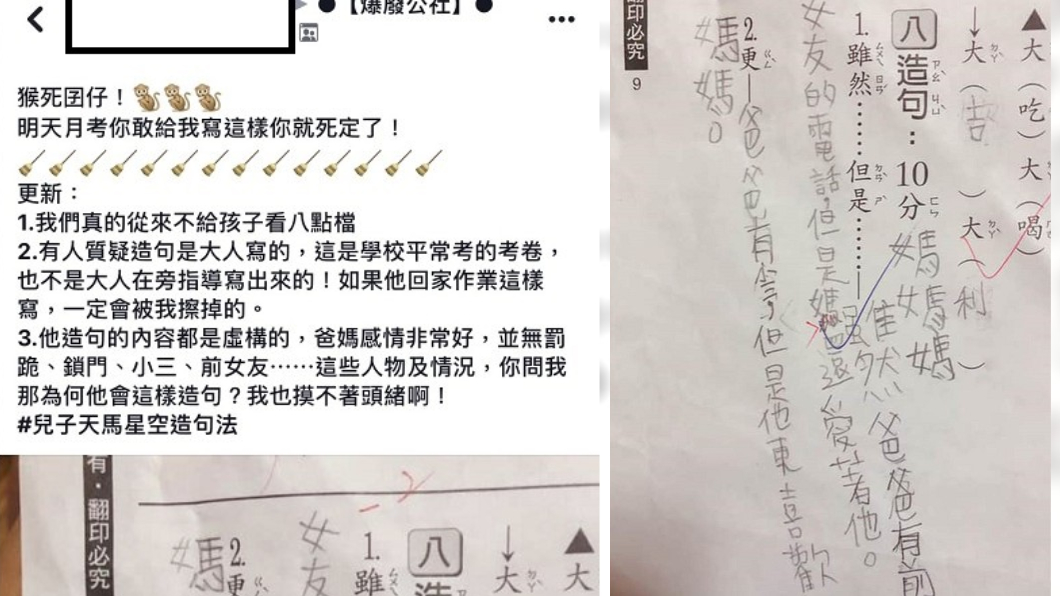 ●【爆廢公社】●
猴死囝仔！
明天月考你敢給我寫這樣你就死定了！
更新：
1.我們真的從來不給孩子看八點檔
2.有人質疑造句是大人寫的，這是學校平常考的考卷，
也不是大人在旁指導寫出來的！如果他回家作業這樣
寫，一定會被我擦掉的。
3.他造句的內容都是虛構的，爸媽感情非常好，並無罰
跪、鎖門、小三、前女友⋯⋯這些人物及情況，你問我
那為何他會這樣造句？我也摸不著頭緒啊！
#兒子天馬星空造句法
▲大
↓大
八造
1.雖
女友
2.更
媽
有．翻印必究
-2
▲大（吃）大（喝）
↓大（吉）大（利）
八 造句：10分
1.雖然……但是……
雖然爸爸有前
女友的電話，但是媽媽還愛著他。
2.更—爸爸有
但是他更喜歡
媽媽。
翻印必究
9